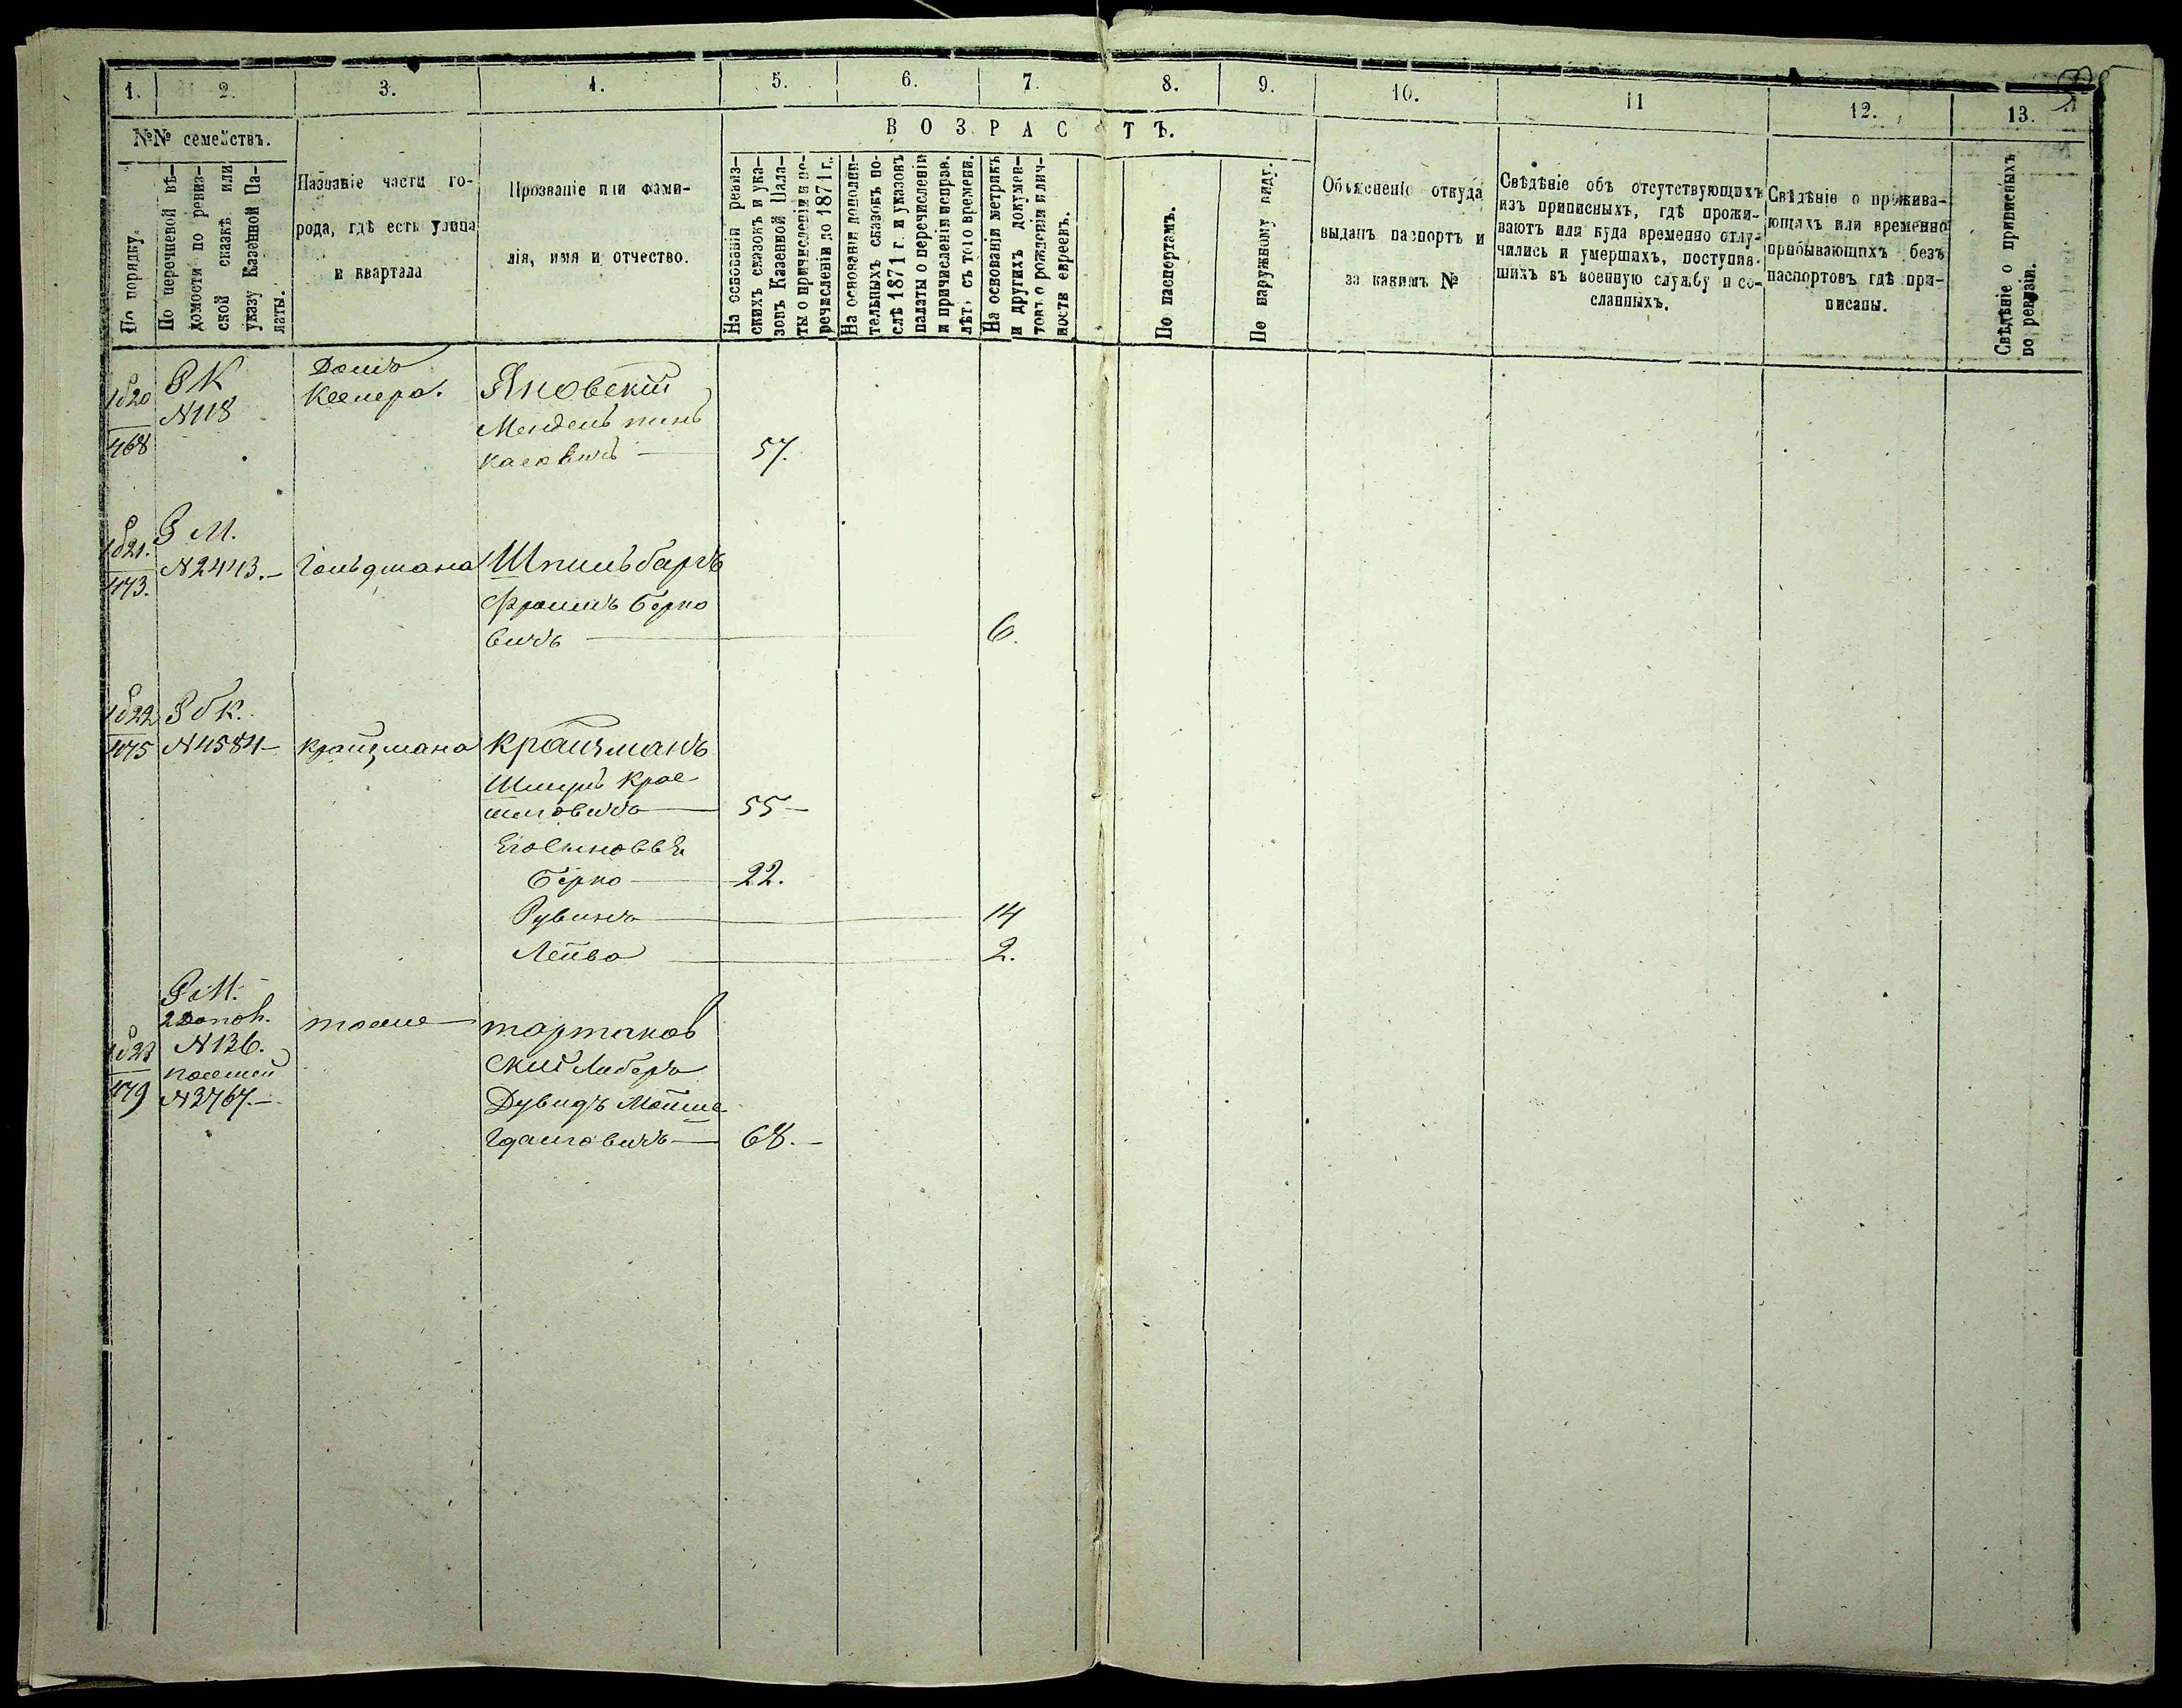 1. 2. 3. 4. 5. 6. 7. 8. 9. 10. 11 12. 13.
№№ семействъ.
По порядку.
По перечневой вѣ-
домости по ревиз-
ской сказкѣ или
указу Казенной Па-
латы.
Названіе части го-
рода, гдѣ есть улица
и квартала
Прозваніе или фами-
лія, имя и отчество.
ВОЗРАСТЪ.
На основаніи ревиз-
скихъ сказокъ и ука-
зовъ Казенной Пала-
ты о причисленіи и пе-
речисленіи до 1871 г.
На основаніи дополни-
тельныхъ сказокъ по-
слѣ 1871 г. и указовъ
палаты о перечисленіи
и причисленіи исправ.
лѣтъ съ того времени.
На основаніи метрикъ
и другихъ докумен-
товъ о рожденіи и лич-
ности евреевъ.
По паспортамъ.
По наружному виду.
Объясненіе откуда
выданъ паспортъ и
за какимъ №
Свѣдѣніе объ отсутствующихъ
изъ приписныхъ, гдѣ прожи-
ваютъ или куда временно отлу-
чились и умершихъ, поступив-
шихъ въ военную службу и со-
сланныхъ.
Свѣдѣніе о прожива-
ющихъ или временно
прибывающихъ безъ
паспортовъ гдѣ при-
писаны.
Свѣдѣніе о приписныхъ
по ревизіи.
1520
468
РК
N118
Домъ
Кесмера.
Яновскій
Мендель пинь
касовичъ 57.
1521.
473.
РМ.
N2443.
Гольдмана
Шпильбаргъ
Фроимъ Берко
вичъ 6.
1522
475
Р б К.
N4584
Крайзмана
Крайзманъ
Шмуль Крае
мшовичъ 55
Его сыновья
Берко 22.
Рувинъ 14
Лейба 2.
1523
479
РМ.
2 Допол.
N136.
N3767.
тоже
Тартаков
скій Либеръ
Дувидъ Мойше
Гдалговичъ 68.